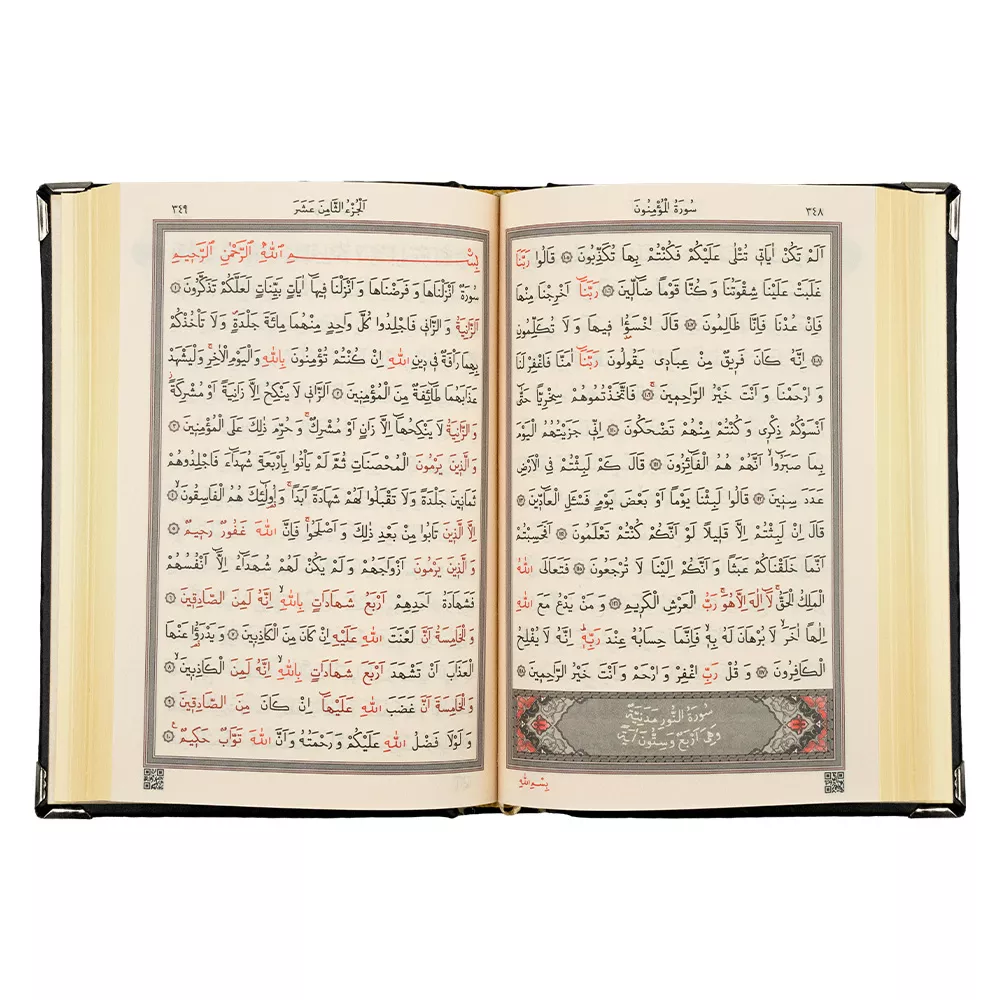 ٣٤٨
سُورَةُ الْمُؤْمِنُونَ
اَلَمْ تَكُنْ اٰيَاتٖي تُتْلٰى عَلَيْكُمْ فَكُنْتُمْ بِهَا تُكَذِّبُونَ ﴿١٠٥﴾ قَالُوا رَبَّنَا
غَلَبَتْ عَلَيْنَا شِقْوَتُنَا وَ كُنَّا قَوْمًا ضَٓالّٖينَ ﴿١٠٦﴾ رَبَّنَٓا اَخْرِجْنَا مِنْهَا
فَاِنْ عُدْنَا فَاِنَّا ظَالِمُونَ ﴿١٠٧﴾ قَالَ اخْسَؤُ۫ا فٖيهَا وَ لَا تُكَلِّمُونِ
﴿١٠٨﴾ اِنَّهُ كَانَ فَرٖيقٌ مِنْ عِبَادٖي يَقُولُونَ رَبَّنَٓا اٰمَنَّا فَاغْفِرْلَنَا
وَ ارْحَمْنَا وَ اَنْتَ خَيْرُ الرَّاحِمٖينَ ﴿١٠٩﴾ فَاتَّخَذْتُمُوهُمْ سِخْرِيًّا حَتّٰٓى
اَنْسَوْكُمْ ذِكْرٖي وَ كُنْتُمْ مِنْهُمْ تَضْحَكُونَ ﴿١١٠﴾ اِنّٖي جَزَيْتُهُمُ الْيَوْمَ
بِمَا صَبَرُٓوا اَنَّهُمْ هُمُ الْفَٓائِزُونَ ﴿١١١﴾ قَالَ كَمْ لَبِثْتُمْ فِي الْاَرْضِ
عَدَدَ سِنٖينَ ﴿١١٢﴾ قَالُوا لَبِثْنَا يَوْمًا اَوْ بَعْضَ يَوْمٍ فَسْـَٔلِ الْعَٓادّٖينَ ﴿١١٣﴾
قَالَ اِنْ لَبِثْتُمْ اِلَّا قَلٖيلًا لَوْ اَنَّكُمْ كُنْتُمْ تَعْلَمُونَ ﴿١١٤﴾ اَفَحَسِبْتُمْ
اَنَّمَا خَلَقْنَاكُمْ عَبَثًا وَ اَنَّكُمْ اِلَيْنَا لَا تُرْجَعُونَ ﴿١١٥﴾ فَتَعَالَى اللّٰهُ
الْمَلِكُ الْحَقُّ لَٓا اِلٰهَ اِلَّا هُوَ رَبُّ الْعَرْشِ الْكَرٖيمِ ﴿١١٦﴾ وَ مَنْ يَدْعُ مَعَ اللّٰهِ
اِلٰهًا اٰخَرَ لَا بُرْهَانَ لَهُ بِهٖ فَاِنَّمَا حِسَابُهُ عِنْدَ رَبِّهٖ اِنَّهُ لَا يُفْلِحُ
الْكَافِرُونَ ﴿١١٧﴾ وَ قُلْ رَبِّ اغْفِرْ وَ ارْحَمْ وَ اَنْتَ خَيْرُ الرَّاحِمٖينَ ﴿١١٨﴾
سُورَةُ النُّورِ مَدَنِيَّةٌ
وَهِيَ اَرْبَعٌ وَ سِتُّونَ اٰيَةً
بِسْمِ اللّٰهِ
اَلْجُزْءُ الثَّامِنَ عَشَرَ
٣٤٩
بِسْمِ اللّٰهِ الرَّحْمٰنِ الرَّحٖيمِ
سُورَةٌ اَنْزَلْنَاهَا وَ فَرَضْنَاهَا وَ اَنْزَلْنَا فٖيهَٓا اٰيَاتٍ بَيِّنَاتٍ لَعَلَّكُمْ تَذَكَّرُونَ ﴿١﴾
اَلزَّانِيَةُ وَ الزَّانٖي فَاجْلِدُوا كُلَّ وَاحِدٍ مِنْهُمَا مِائَةَ جَلْدَةٍ وَ لَا تَأْخُذْكُمْ
بِهِمَا رَأْفَةٌ فٖي دٖينِ اللّٰهِ اِنْ كُنْتُمْ تُؤْمِنُونَ بِاللّٰهِ وَ الْيَوْمِ الْاٰخِرِ وَ لْيَشْهَدْ
عَذَابَهُمَا طَٓائِفَةٌ مِنَ الْمُؤْمِنٖينَ ﴿٢﴾ اَلزَّانٖي لَا يَنْكِحُ اِلَّا زَانِيَةً اَوْ مُشْرِكَةً
وَ الزَّانِيَةُ لَا يَنْكِحُهَٓا اِلَّا زَانٍ اَوْ مُشْرِكٌ وَ حُرِّمَ ذٰلِكَ عَلَى الْمُؤْمِنٖينَ ﴿٣﴾
وَ الَّذٖينَ يَرْمُونَ الْمُحْصَنَاتِ ثُمَّ لَمْ يَأْتُوا بِاَرْبَعَةِ شُهَدَٓاءَ فَاجْلِدُوهُمْ
ثَمَانٖينَ جَلْدَةً وَ لَا تَقْبَلُوا لَهُمْ شَهَادَةً اَبَدًا وَ اُولٰٓئِكَ هُمُ الْفَاسِقُونَ ﴿٤﴾
اِلَّا الَّذٖينَ تَابُوا مِنْ بَعْدِ ذٰلِكَ وَ اَصْلَحُوا فَاِنَّ اللّٰهَ غَفُورٌ رَحٖيمٌ ﴿٥﴾
وَ الَّذٖينَ يَرْمُونَ اَزْوَاجَهُمْ وَ لَمْ يَكُنْ لَهُمْ شُهَدَٓاءُ اِلَّٓا اَنْفُسُهُمْ
فَشَهَادَةُ اَحَدِهِمْ اَرْبَعُ شَهَادَاتٍ بِاللّٰهِ اِنَّهُ لَمِنَ الصَّادِقٖينَ ﴿٦﴾
وَ الْخَامِسَةُ اَنَّ لَعْنَتَ اللّٰهِ عَلَيْهِ اِنْ كَانَ مِنَ الْكَاذِبٖينَ ﴿٧﴾ وَ يَدْرَؤُ۬ا عَنْهَا
الْعَذَابَ اَنْ تَشْهَدَ اَرْبَعَ شَهَادَاتٍ بِاللّٰهِ اِنَّهُ لَمِنَ الْكَاذِبٖينَ ﴿٨﴾
وَ الْخَامِسَةَ اَنَّ غَضَبَ اللّٰهِ عَلَيْهَٓا اِنْ كَانَ مِنَ الصَّادِقٖينَ ﴿٩﴾
وَ لَوْلَا فَضْلُ اللّٰهِ عَلَيْكُمْ وَ رَحْمَتُهُ وَ اَنَّ اللّٰهَ تَوَّابٌ حَكٖيمٌ ﴿١٠﴾